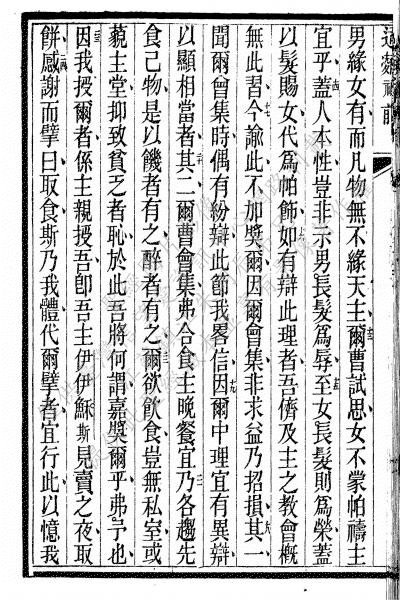 男緣女有而凡物無不緣天主爾曹試思女不蒙帕禱主
宜乎蓋人本性豈非示男長髮爲辱至女長髮則爲榮蓋
以髮賜女代爲帕飾如有辯此理者吾儕及主之教會概
無此習今諭此不加奬爾因爾會集非求益乃招損其一
聞爾會集時偶有紛辯此節我畧信因爾中理宜有異辯
以顯相當者其二爾曹會集弗合食主晚餐宜乃各趨先
食己物是以饑者有之醉者有之爾欲飲食豈無私室或
藐主堂抑致貧乏者恥於此吾將何謂嘉奬爾乎弗予也
因我授爾者係主親授吾卽吾主伊伊穌斯見賣之夜取
餅感謝而擘曰取食斯乃我體代爾擘者宜行此以憶我